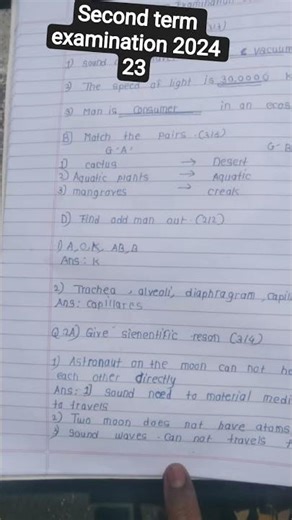 Second term
examination 2024
23
Examination
1) sound i
& vacuum
2) The speed of light is 30,000
3) Man is consumer in an ecos
B) Match the pairs (3/3)
G-'A' G-B
1) cactus → Desert
2) Aquatic plants → Aquatic
3) mangroves → creak
D) Find odd man out (2/2)
1) A, O, K, AB, B
Ans: K
2) Trachea, alveoli, diaphragram, capil
Ans: capillares
Q.2A) Give sienentific reson (3/4)
1) Astronaut on the moon can not he
each other directly
Ans: 1) sound need to material medi
to travels
2) Two moon does not have atoms
sound waves can not travels t